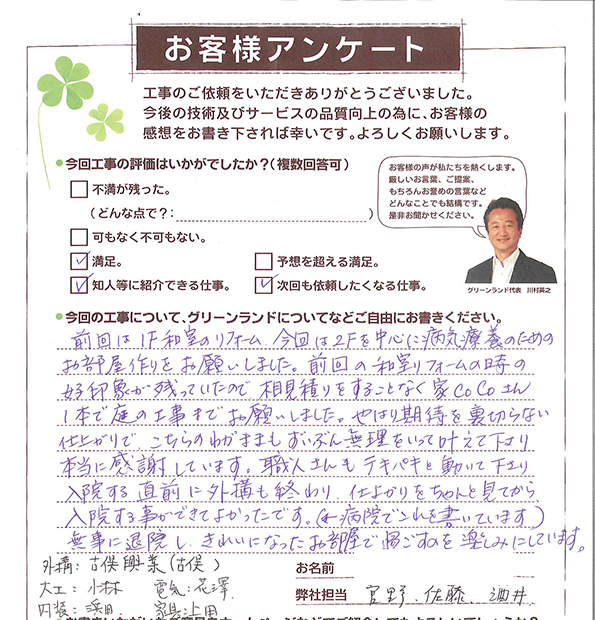 お客様アンケート
工事のご依頼をいただきありがとうございました。
今後の技術及びサービスの品質向上の為に、お客様の
感想をお書き下されば幸いです。よろしくお願いします。
●今回工事の評価はいかがでしたか?(複数回答可)
不満が残った。
(どんな点で?: )
可もなく不可もない。
満足。 予想を超える満足。
知人等に紹介できる仕事。 次回も依頼したくなる仕事。
お客様の声が私たちを熱くします。
厳しいお言葉、ご提案、
もちろんお誉めの言葉など
どんなことでも結構です。
是非お聞かせください。
グリーンランド代表 川村英之
●今回の工事について、グリーンランドについてなどご自由にお書きください。
前回は1F和室のリフォーム、今回は2Fを中心に病気療養のための
お部屋作りをお願いしました。前回の和室リフォームの時の
好印象が残っていたので相見積りをすることなく家CoCoさん
1本で庭の工事までお願いしました。やはり期待を裏切らない
仕上がりで、こちらのわがままもずいぶん無理をいって叶えて下さり
本当に感謝しています。職人さんもテキパキと動いて下さり
入院する直前に外構も終わり、仕上がりをちゃんと見てから
入院する事ができてよかったです。(←病院でこれを書いています)
無事に退院し、きれいになったお部屋で過ごすのを楽しみにしています。
外構: 古俣興業(古俣)
お名前
大工: 小林 電気: 花澤
弊社担当 宮野、佐藤、酒井
内装: 家具: 上田